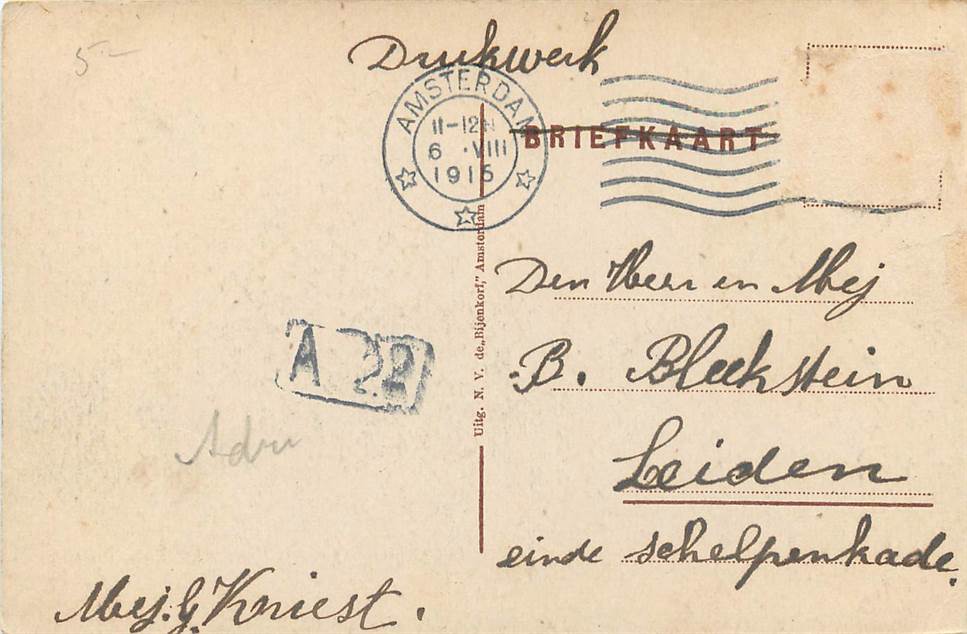 5-
Drukwerk
AMSTERDAM
11-12
6 .VIII
1915
BRIEFKAART
Uitg. N. V. de „Bijenkorf," Amsterdam
Den Heer en Mej
B. Bleekstein
Leiden
einde schelpenkade.
A 22
Mej. G. Kniest.